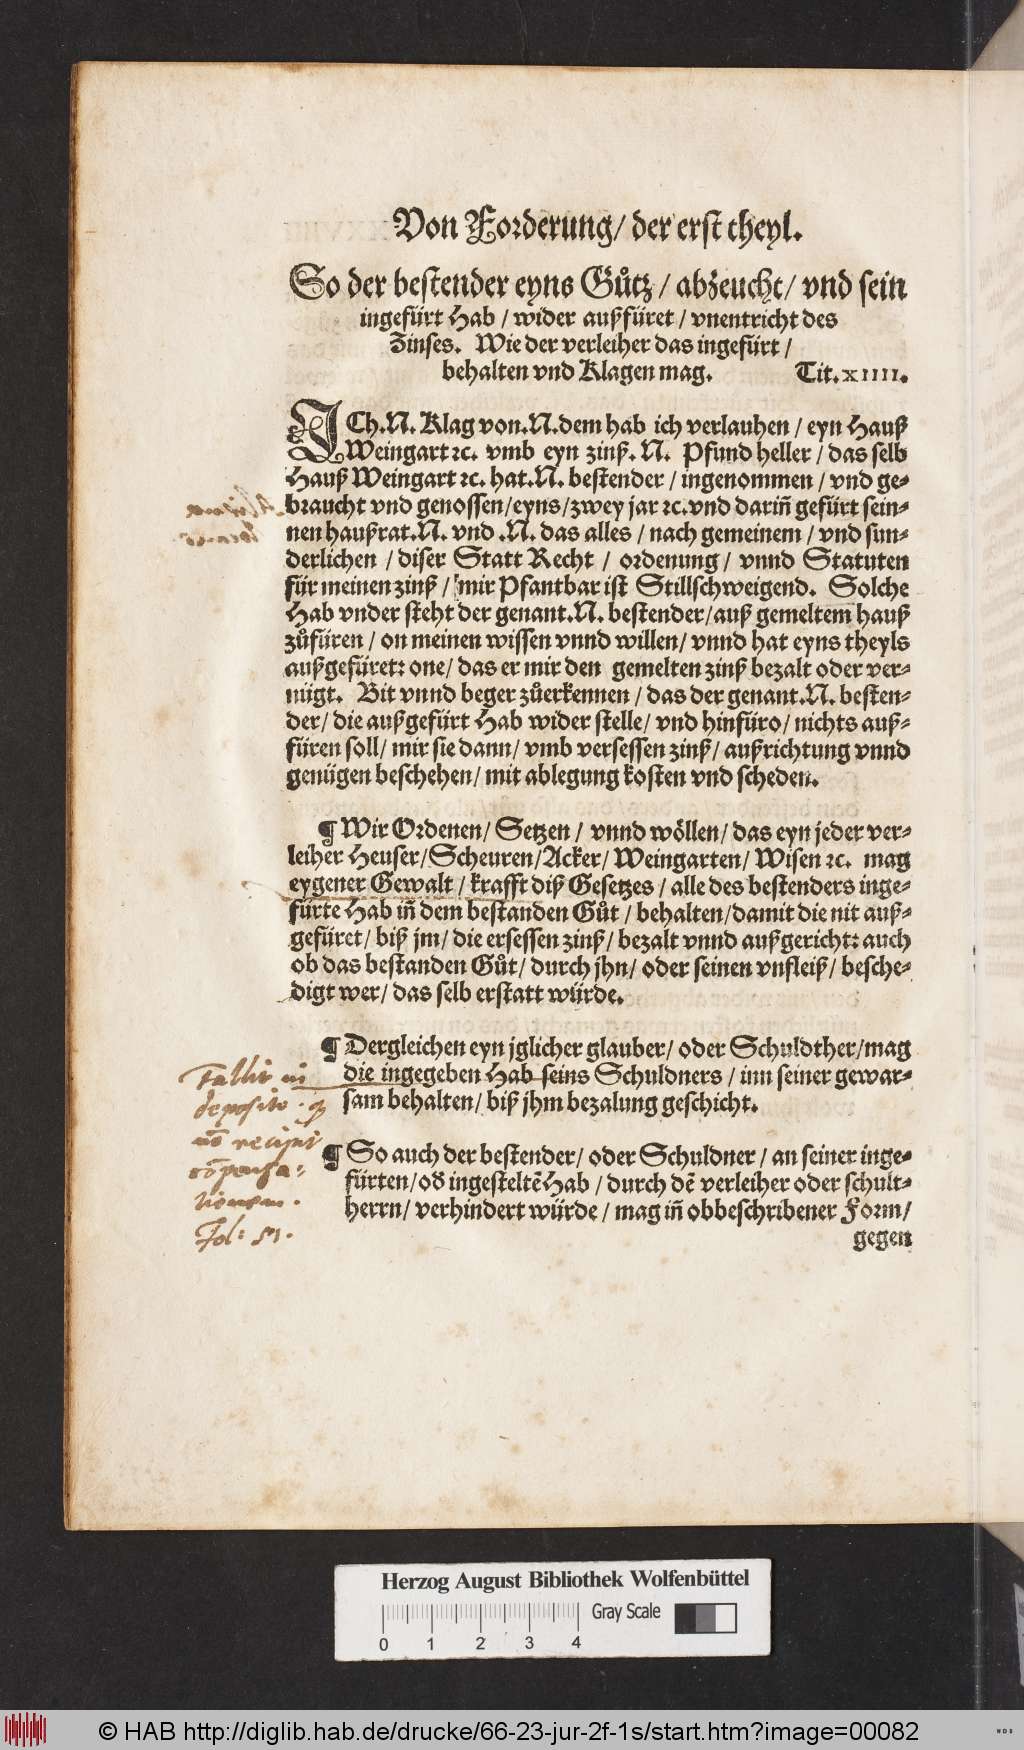 Von Forderung/ der erst theyl.
So der bestender eyns Gůtz / abzeucht/ vnd sein
ingefürt Hab / wider außfüret / vnentricht des
Zinses. Wie der verleiher das ingefürt /
behalten vnd Klagen mag. Tit. xiiii.
ICh .N. Klag von .N. dem hab ich verlauhen / eyn Hauß
Weingart ꝛc. vmb eyn zinß .N. Pfund heller / das selb
Hauß Weingart ꝛc. hat .N. bestender / ingenommen / vnd ge-
braucht vnd genossen/eyns/zwey jar ꝛc. vnd dariñ gefürt sein-
nen haußrat .N. vnd .N. das alles / nach gemeinem / vnd sun-
derlichen / diser Statt Recht / ordenung / vnnd Statuten
für meinen zinß / mir Pfantbar ist Stillschweigend. Solche
Hab vnder steht der genant .N. bestender/auß gemeltem hauß
zůfüren / on meinen wissen vnnd willen/ vnnd hat eyns theyls
außgefüret: one/ das er mir den gemelten zinß bezalt oder ver-
nügt. Bit vnnd beger zůerkennen / das der genant .N. besten-
der/ die außgefürt Hab wider stelle/ vnd hinfüro/ nichts auß-
füren soll/ mir sie dann/ vmb versessen zinß/ außrichtung vnnd
genügen beschehen/ mit ablegung kosten vnd scheden.
¶ Wir Ordenen/ Setzen / vnnd wöllen/ das eyn jeder ver-
leiher Heuser/Scheuren/Acker/ Weingarten/ Wisen ꝛc. mag
eygener Gewalt / krafft diß Gesetzes / alle des bestenders inge-
fürte Hab iñ dem bestanden Gůt / behalten/damit die nit auß-
gefüret/ biß jm/ die ersessen zinß/ bezalt vnnd außgericht: auch
ob das bestanden Gůt/ durch jhn/ oder seinen vnfleiß/ besche-
digt wer/ das selb erstatt würde.
¶ Dergleichen eyn jglicher glauber/ oder Schuldther/mag
die ingegeben Hab seins Schuldners / inn seiner gewar-
sam behalten/ biß jhm bezalung geschicht.
Fallit in
deposito.
recipit
cōpensa-
tionem.
Fol: 51.
¶ So auch der bestender/ oder Schuldner / an seiner inge-
fürten/od̕ ingesteltē Hab / durch dē verleiher oder schult-
herrn/ verhindert würde / mag iñ obbeschribener Form/
gegen
Herzog August Bibliothek Wolfenbüttel
0 1 2 3 4
Gray Scale
© HAB http://diglib.hab.de/drucke/66-23-jur-2f-1s/start.htm?image=00082